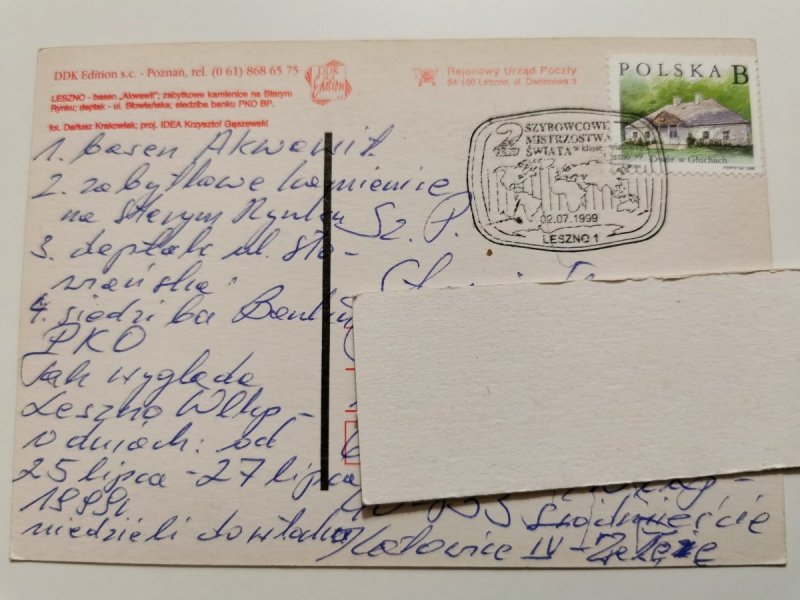 DDK Edition s.c. - Poznań, tel. (0 61) 868 65 75
LESZNO - basen „Akwawit”; zabytkowe kamienice na Starym
Rynku; deptak - ul. Słowiańska; siedziba banku PKO BP.
fot. Dariusz Krakowiak; proj. IDEA Krzysztof Gąszewski
DDK
Edition
Rejonowy Urząd Poczty
64-100 Leszno, ul. Dworcowa 3
POLSKA B
Dwór w Głuchach
SZYBOWCOWE
MISTRZOSTWA
ŚWIATA w klasie
02.07.1999
LESZNO 1
1. basen Akwawit.
2. zabytkowe kamienice
na Starym Rynku
3. deptak ul. Sło-
wiańska.
4. siedziba Banku
PKO
Tak wygląda
Leszno Wlkp -
w dniach: od
25 lipca - 27 lipca
1999r
niedzieli do wtorku
Sz. P.
Śródmieście
Katowice IV - Załęże